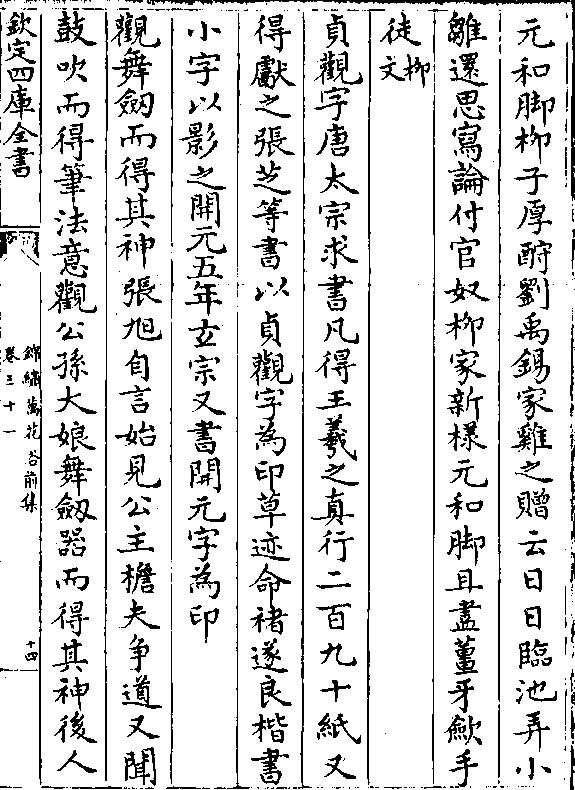 元和脚柳子厚酧劉禹錫家雞之贈云日日臨池弄小
雛還思寫論付官奴柳家新様元和脚且盡薑牙歛手
徒柳文
貞觀字唐太宗求書凡得王羲之真行二百九十紙又
得獻之張芝等書以貞觀字為印草迹命褚遂良楷書
小字以影之開元五年玄宗又書開元字為印
觀舞劔而得其神張旭自言始見公主檐夫争道又聞
鼓吹而得筆法意觀公孫大娘舞劔器而得其神後人
欽定四庫全書
錦繡萬花谷前集
卷三十一
十四